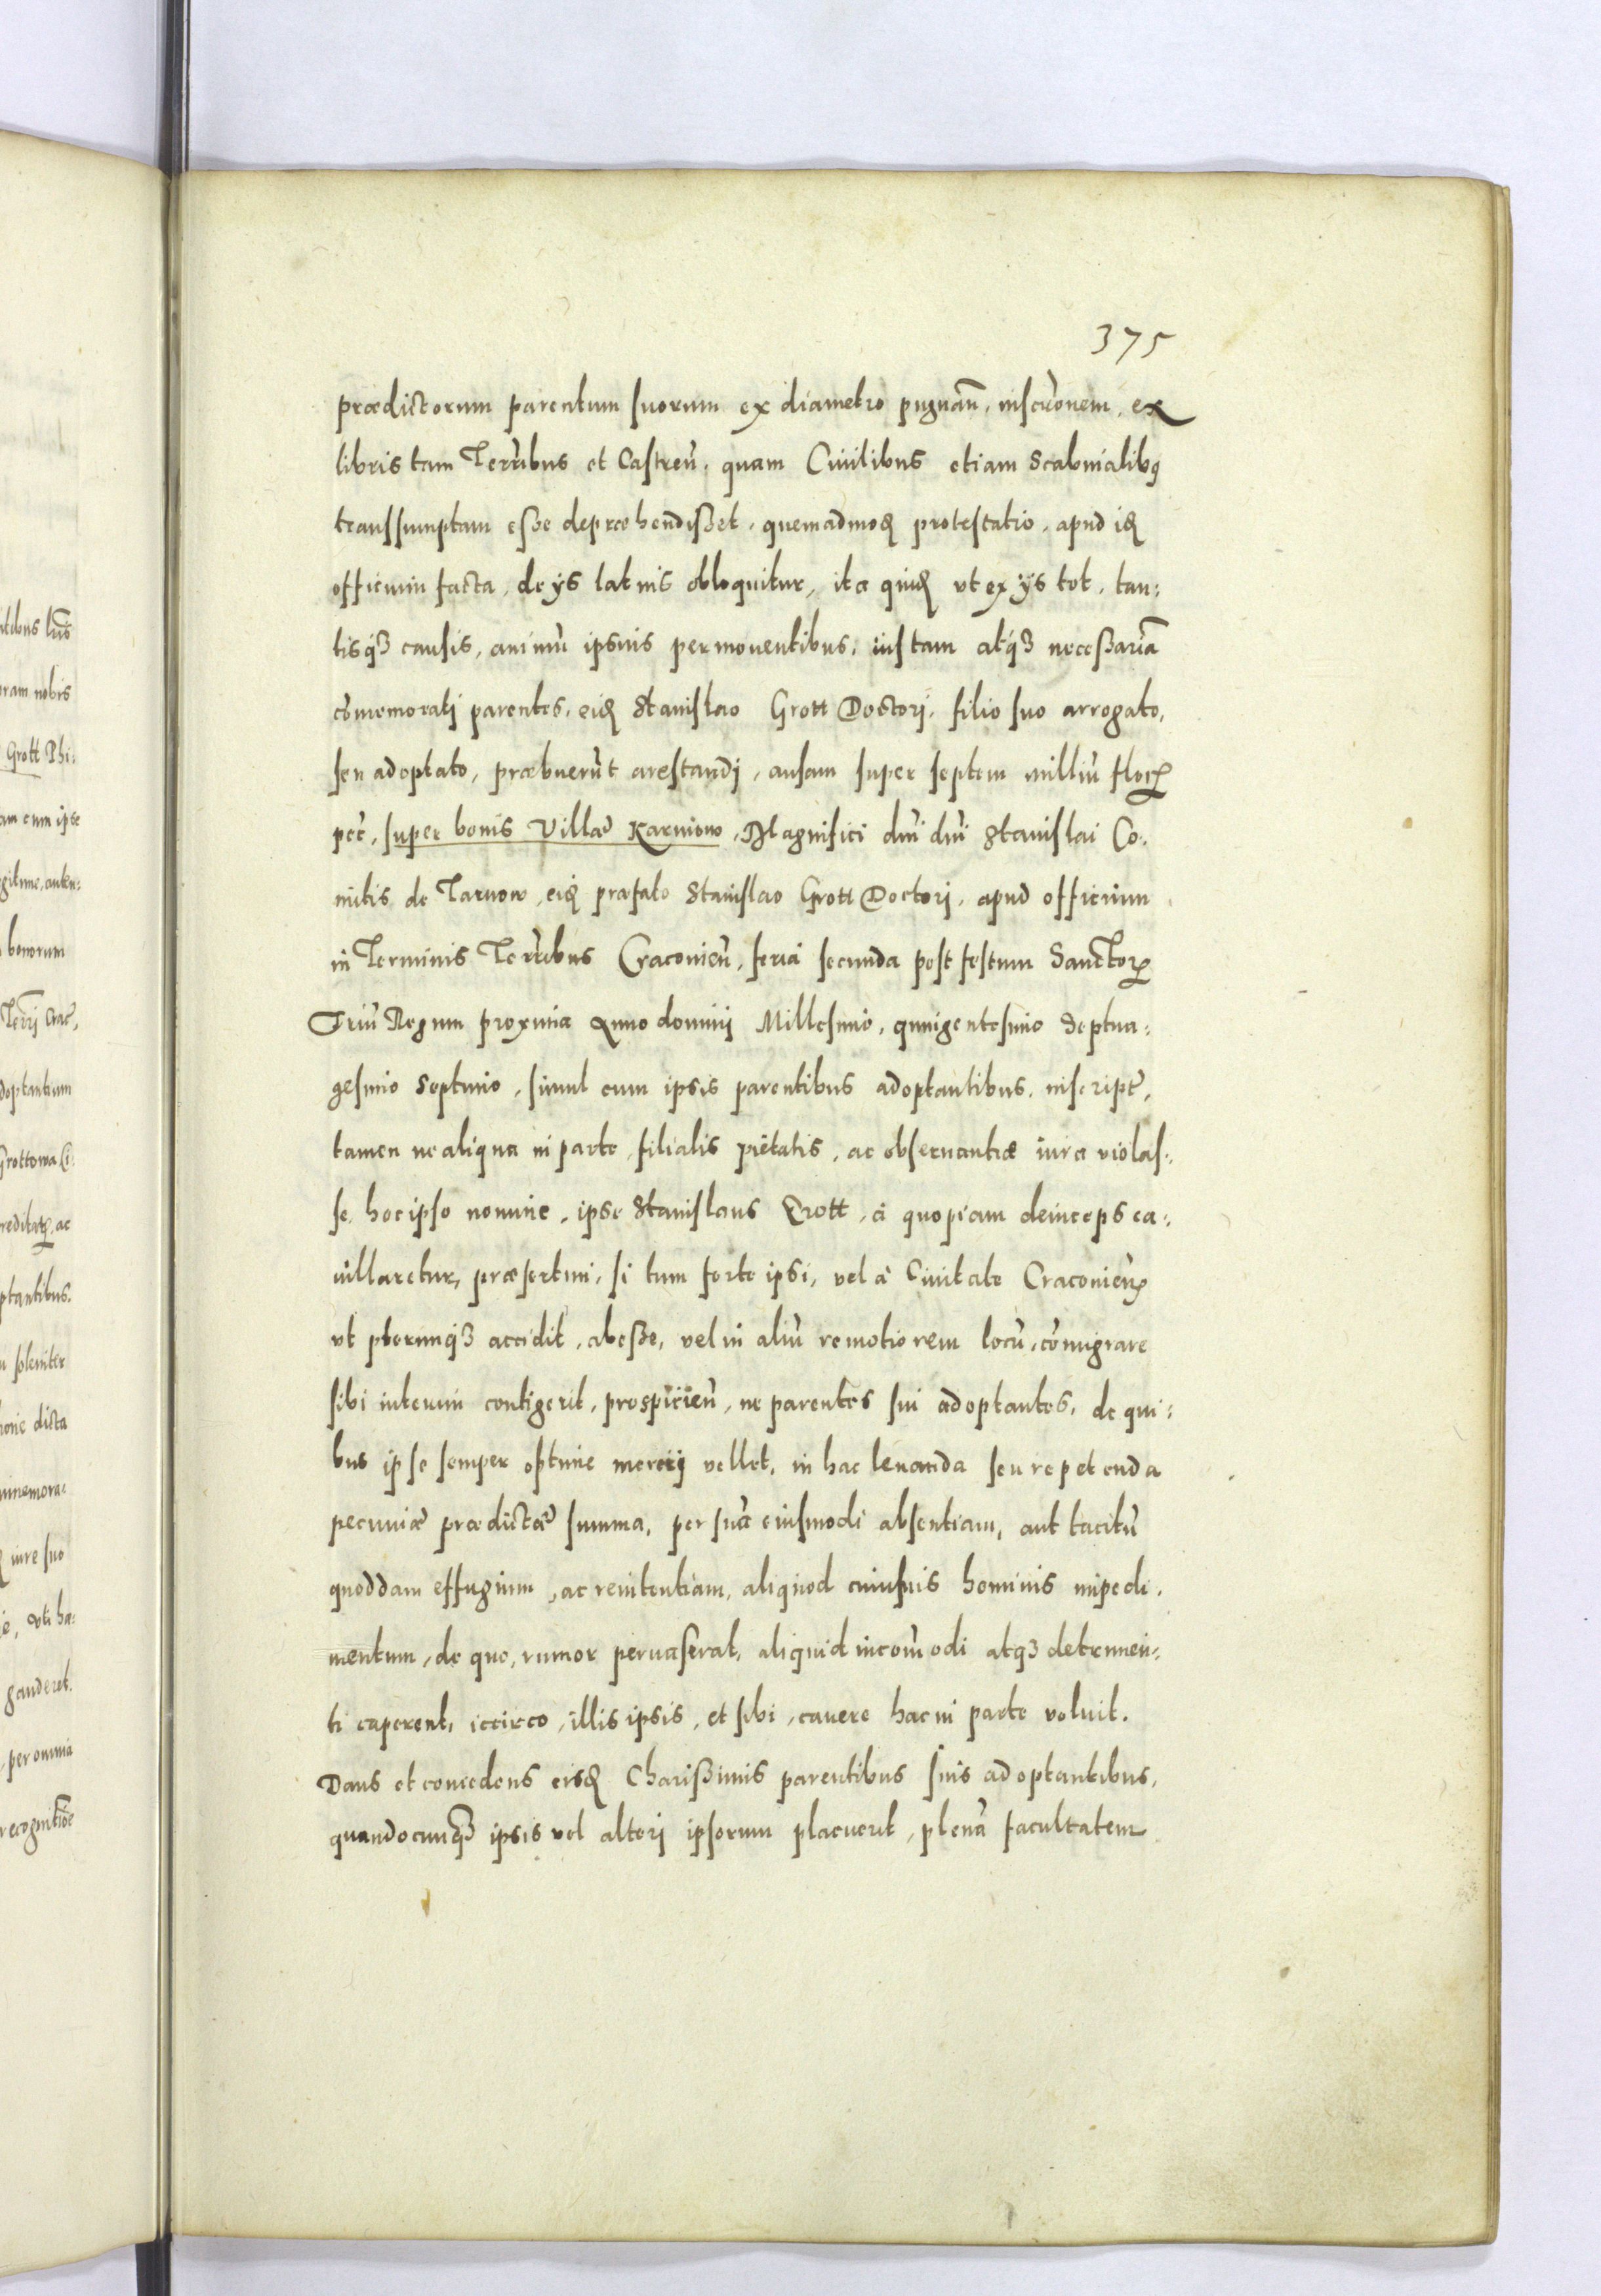 375
prædictorum parentum suorum ex diametro pugnan̄, inscr̄onem, ex
libris tam Terr̄ibus et Castren̄, quam Ciuilibus etiam Scabinalibꝯ
transsumptam esse depræhendisset, quemadmoꝺ protestatio, apud iꝺ
officium facta, de ÿs latius obloquitur, ita quiꝺ vt ex ÿs tot, tan:
tisq́ꝫ causis, animū ipsius permouentibus, iustam atq́ꝫ necessariā
com̄emoratj parentes, eiꝺ Stanislao Grott Doctorj, filio suo arrogato,
seu adoptato, præbuerūt arestandj, ansam super septem milliū florꝝ
pec̄, super bonis Villæ Karniow, Magnifici dn̄i dn̄i Stanislai Co:
mitis de Tarnow, eiꝺ præfato Stanislao Grott Doctorj, apud officium
in Terminis Terr̄ibus Cracouien̄, feria secunda post festum Sanctorꝝ
Triū Regum proxima Anno dominj Millesimo, quingentesimo Septua:
gesimo Septimo, simul cum ipsis parentibus adoptantibus, inscript̄,
tamen ne aliqua in parte, filialis pietatis, ac obseruantiæ iura violas:
se, hoc ipso nomine, ipse Stanislaus Grott, à quopiam deinceps ca:
uillaretur, præsertim, si tum forte ipsi, vel à Ciuitate Cracouien̄
vt plerunq́ꝫ accidit, abesse, vel in aliū remotiorem locū, com̄igrare
sibi interim contigerit, prospicien̄, ne parentes sui adoptantes, de qui:
bus ipse semper optime mererj vellet, in hac leuanda seu repetenda
pecuniæ prædictæ summa, per suā eiusmodi absentiam, aut tacitū
quoddam effugium, ac renitentiam, aliquod cuiusuis hominis impedi:
mentum, de quo, rumor peruaserat, aliquid incom̄odi atqꝫ detrimen:
ti caperent, iccirco, illis ipsis, et sibi, cauere hac in parte voluit.
Dans et concedens eisꝺ Charissimis parentibus suis adoptantibus,
quandocunq́ꝫ ipsis vel alterj ipsorum placuerit, plenā facultatem